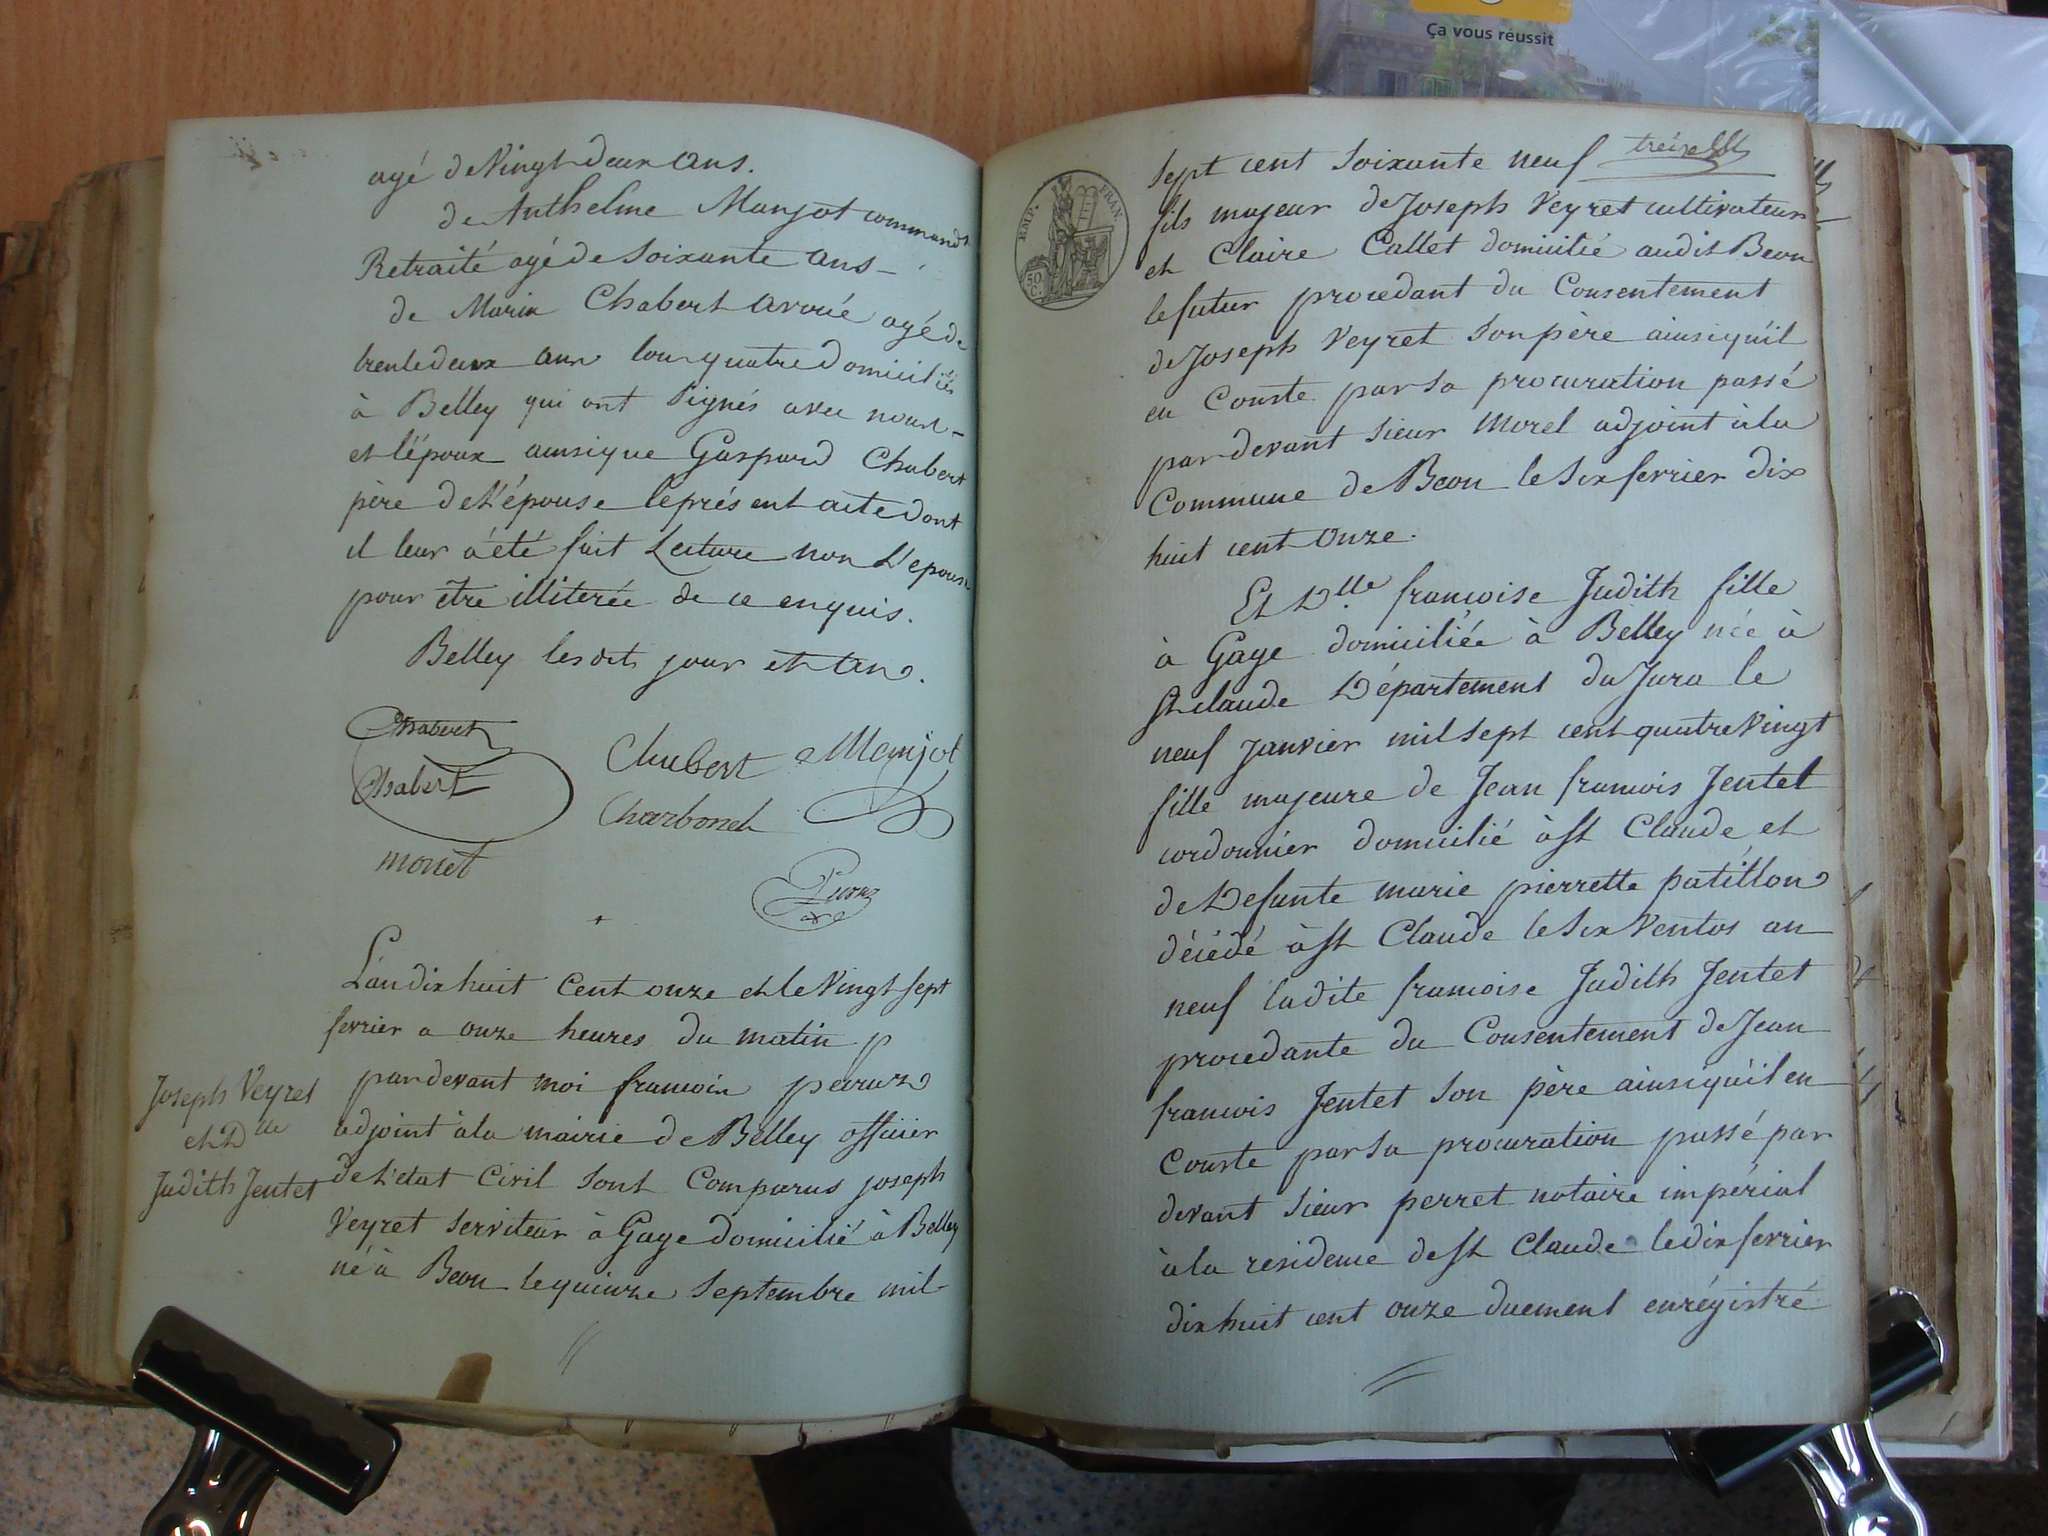 Ça vous réussit
agé de Vingt deux ans.
de Anthelme Manjot command
Retraité agé de Soixante ans –
de Marin Chabert avoué agé de
trente deux ans tous quatre domiciliés
à Belley qui ont Signés avec nous –
et l'époux ainsi que Gaspard Chabert
père de L'épouse le présent acte dont
il leur a été fait Lecture non L'epouse
pour être illiterée de ce enquis.
Belley les dits jour et an.
Chabert
Chabert Manjot
Chabert
Charbonet
monet
L'an dix huit Cent onze et le Vingt Sept
fevrier a onze heures du matin p
pardevant moi francois peruz
adjoint à la mairie de Belley officier
de L'etat Civil Sont Comparus joseph
Veyret Serviteur à Gage domicilié à Belley
né à Beon le quinze Septembre mil
Joseph Veyret
et D.lle
Judith Jentet
EMP. FRAN.
50 C.
treize
Sept cent Soixante neuf
fils majeur de Joseph Veyret cultivateur
et Claire Callet domicilié audit Beon
le futur procedant du Consentement
de Joseph Veyret Son père ainsi qu'il
en Conste par Sa procuration passé
par devant Sieur Morel adjoint à la
Commune de Beon le Six fevrier dix
huit cent Onze.
Et D.lle francoise Judith fille
à Gage domiciliée à Belley née à
St claude Département du Jura le
neuf Janvier mil Sept cent quatre Vingt
fille majeure de Jean francois Jentet
cordonnier domicilié à St Claude et
de Defunte marie pierrette patillon
décédé à St Claude le Six Ventos an
neuf ladite francoise Judith Jentet
procedante du Consentement de Jean
francois Jentet Son père ainsi qu'il en
Conste par Sa procuration passé par
devant Sieur perret notaire impérial
à la residence de St Claude le dix fevrier
dix huit cent onze duement enrégistré